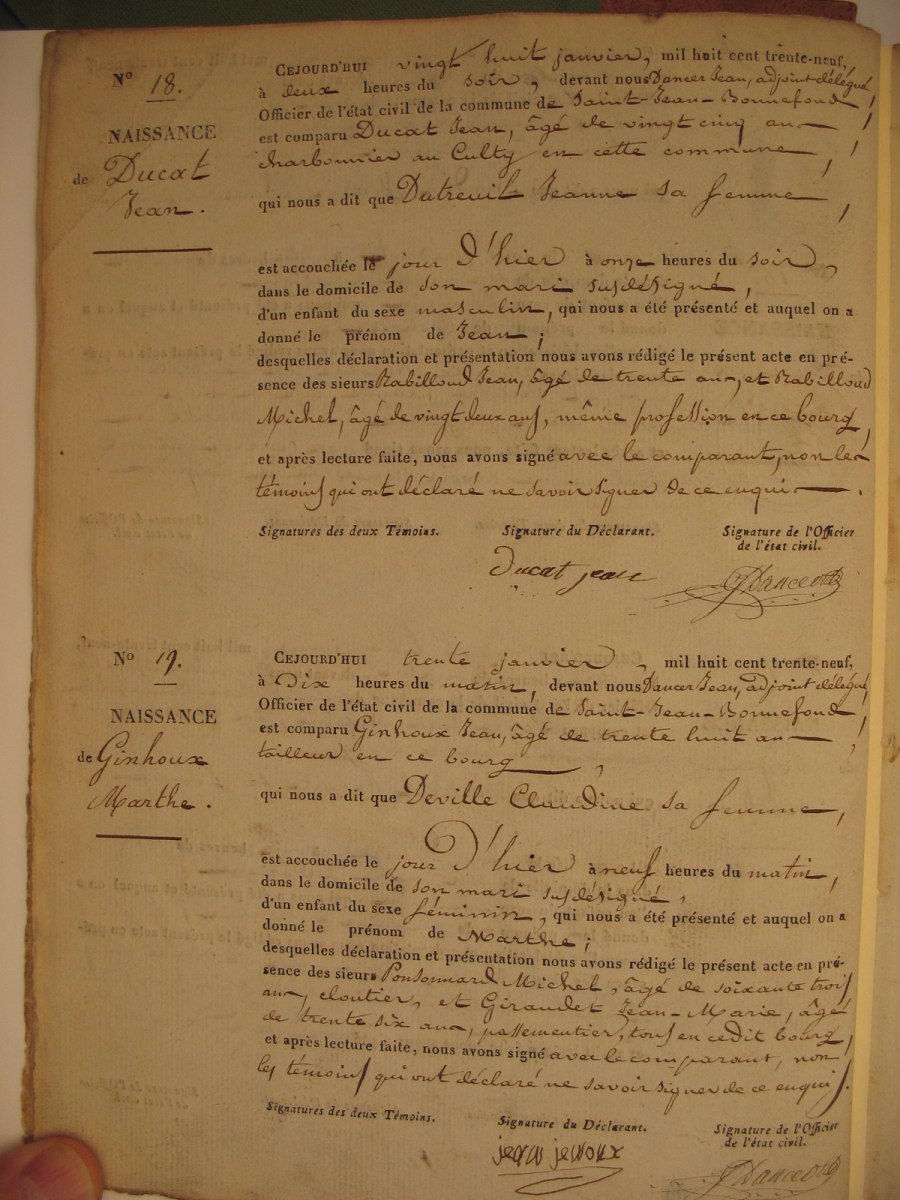 N° 18.
NAISSANCE
de Ducat
Jean.
CEJOURD'HUI vingt huit janvier, mil huit cent trente-neuf,
à deux heures du soir, devant nous Dancer Jean, adjoint délégué,
Officier de l'état civil de la commune de Saint-Jean-Bonnefond,
est comparu Ducat Jean, âgé de vingt cinq ans
charbonnier au Culty en cette commune,
qui nous a dit que Dutreuil Jeanne sa femme,
est accouchée le jour d'hier à onze heures du soir,
dans le domicile de son mari susdésigné,
d'un enfant du sexe masculin, qui nous a été présenté et auquel on a
donné le prénom de Jean;
desquelles déclaration et présentation nous avons rédigé le présent acte en pré-
sence des sieurs Rabilloud Jean, âgé de trente ans, et Rabilloud
Michel, âgé de vingt deux ans, même profession en ce bourg,
et après lecture faite, nous avons signé avec le comparant, non les
témoins qui ont déclaré ne savoir signer de ce enquis.
Signatures des deux Témoins. Signature du Déclarant. Signature de l'Officier
de l'état civil.
Ducat jean
N° 19.
NAISSANCE
de Ginhoux
Marthe.
CEJOURD'HUI trente janvier, mil huit cent trente-neuf,
à Dix heures du matin, devant nous Dancer Jean, adjoint délégué,
Officier de l'état civil de la commune de Saint-Jean-Bonnefond,
est comparu Ginhoux Jean, âgé de trente huit ans,
tailleur en ce bourg,
qui nous a dit que Deville Claudine sa femme,
est accouchée le jour d'hier à neuf heures du matin,
dans le domicile de son mari susdésigné,
d'un enfant du sexe féminin, qui nous a été présenté et auquel on a
donné le prénom de Marthe;
desquelles déclaration et présentation nous avons rédigé le présent acte en pré-
sence des sieurs Ponsonnard Michel, âgé de soixante trois
ans, cloutier, et Giraudet Jean-Marie, âgé
de trente six ans, passementier, tous en cedit bourg,
et après lecture faite, nous avons signé avec le comparant, non
les témoins qui ont déclaré ne savoir signer de ce enquis.
Signatures des deux Témoins. Signature du Déclarant. Signature de l'Officier
de l'état civil.
jean jenoux